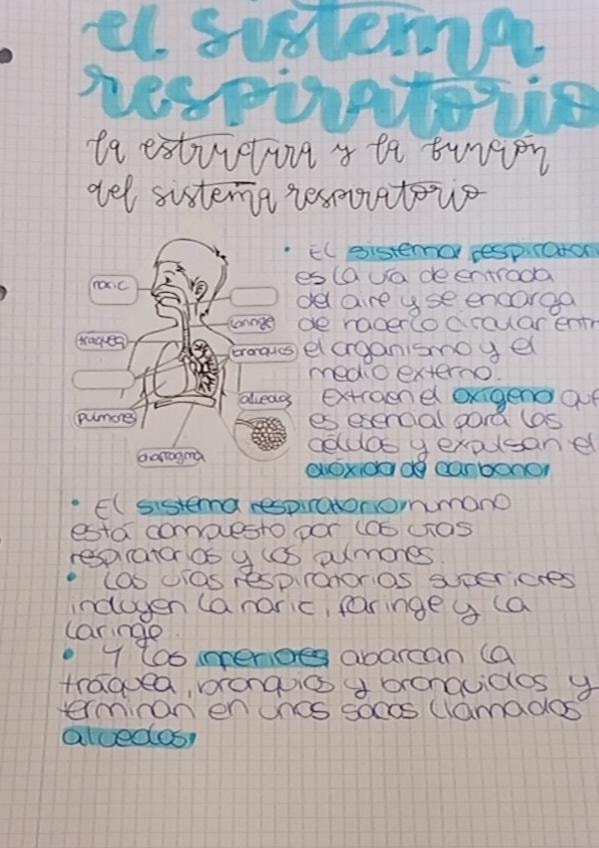 el sistema
respiratorio
la estructura y la función
del sistema respiratorio
nariz
laringe
tráquea
bronquios
alveolos
pulmones
diafragma
• El sistema respirator
es la vía de entrada
del aire y se encarga
de hacerlo circular entr
el organismo y el
medio externo.
Extraen el oxígeno que
es esencial para las
células y expulsan el
dióxido de carbono
• El sistema respiratorio, humano
está compuesto por las vías
respiratorias y los pulmones.
• Las vías respiratorias superiores
incluyen la nariz, faringe y la
laringe.
• Y las inferiores abarcan la
tráquea, bronquios y bronquiolos y
terminan en unos sacos llamados
alveolos,